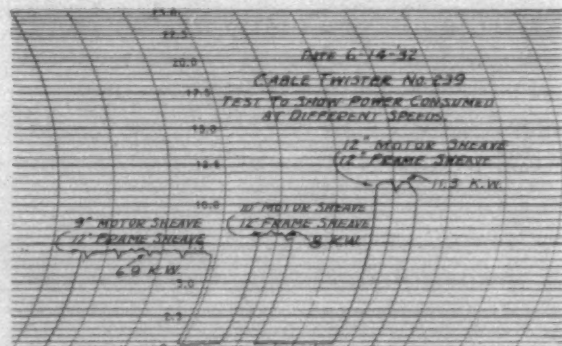 25.0
22.5
20.0
17.5
15.0
12.5
10.0
5.0
2.5
0
DATE 6-14-'32
CABLE TWISTER NO. 239
TEST TO SHOW POWER CONSUMED
AT DIFFERENT SPEEDS.
12" MOTOR SHEAVE
12" FRAME SHEAVE
11.3 K.W.
10" MOTOR SHEAVE
12" FRAME SHEAVE
8 K.W.
9" MOTOR SHEAVE
12" FRAME SHEAVE
6.9 K.W.